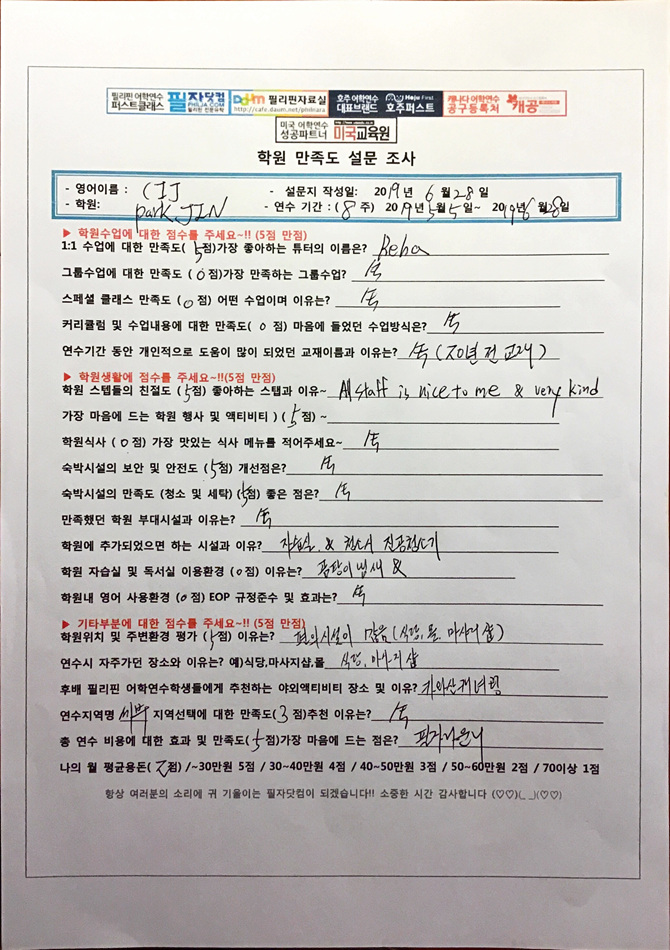 필리핀 어학연수 퍼스트클래스 필자닷컴 PHILJA.COM 필리핀 전문유학 Daum 필리핀자료실 http://cafe.daum.net/philicara 호주 어학연수 대표브랜드 Hoju First 호주퍼스트 캐나다 어학연수 공구등록처 캐공
미국 어학연수 성공파트너 미국교육원
학원 만족도 설문 조사
- 영어이름 : CIJ - 설문지 작성일: 2019년 6월 28일
- 학원: park JIN - 연수 기간 : (8주) 2019년 5월 5일~ 2019년 6월 28일
▶ 학원수업에 대한 점수를 주세요~!! (5점 만점)
1:1 수업에 대한 만족도( 5점)가장 좋아하는 튜터의 이름은? Reba
그룹수업에 대한 만족도 ( 0점)가장 만족하는 그룹수업?
스페셜 클래스 만족도 ( 0점) 어떤 수업이며 이유는?
커리큘럼 및 수업내용에 대한 만족도( 0 점) 마음에 들었던 수업방식은?
연수기간 동안 개인적으로 도움이 많이 되었던 교재이름과 이유는? (20년 전 교재)
▶ 학원생활에 점수를 주세요~!!(5점 만점)
학원 스텝들의 친절도 ( 5점) 좋아하는 스탭과 이유~ All staff is nice to me & very kind
가장 마음에 드는 학원 행사 및 액티비티 ) ( 5점) ~
학원식사 ( 0점) 가장 맛있는 식사 메뉴를 적어주세요~
숙박시설의 보안 및 안전도 ( 5점) 개선점은?
숙박시설의 만족도 (청소 및 세탁) ( 5점) 좋은 점은?
만족했던 학원 부대시설과 이유는?
학원에 추가되었으면 하는 시설과 이유? 자습실 & 청소시 진공청소기
학원 자습실 및 독서실 이용환경 ( 0점) 이유는? 곰팡이 냄새 &
학원내 영어 사용환경 ( 0점) EOP 규정준수 및 효과는?
▶ 기타부분에 대한 점수를 주세요~!! (5점 만점)
학원위치 및 주변환경 평가 ( 5점) 이유는? 편의시설이 많음 (식당, 몰, 마사지 샵)
연수시 자주가던 장소와 이유는? 예)식당,마사지샵,몰 식당, 마사지 샵
후배 필리핀 어학연수학생들에게 추천하는 야외액티비티 장소 및 이유? 카와산 캐녀링
연수지역명 세부 지역선택에 대한 만족도( 3점)추천 이유는?
총 연수 비용에 대한 효과 및 만족도( 5점)가장 마음에 드는 점은?
나의 월 평균용돈( 점) /~30만원 5점 / 30~40만원 4점 / 40~50만원 3점 / 50~60만원 2점 / 70이상 1점
항상 여러분의 소리에 귀 기울이는 필자닷컴이 되겠습니다!! 소중한 시간 감사합니다 (♡♡)(_ _)(♡♡)